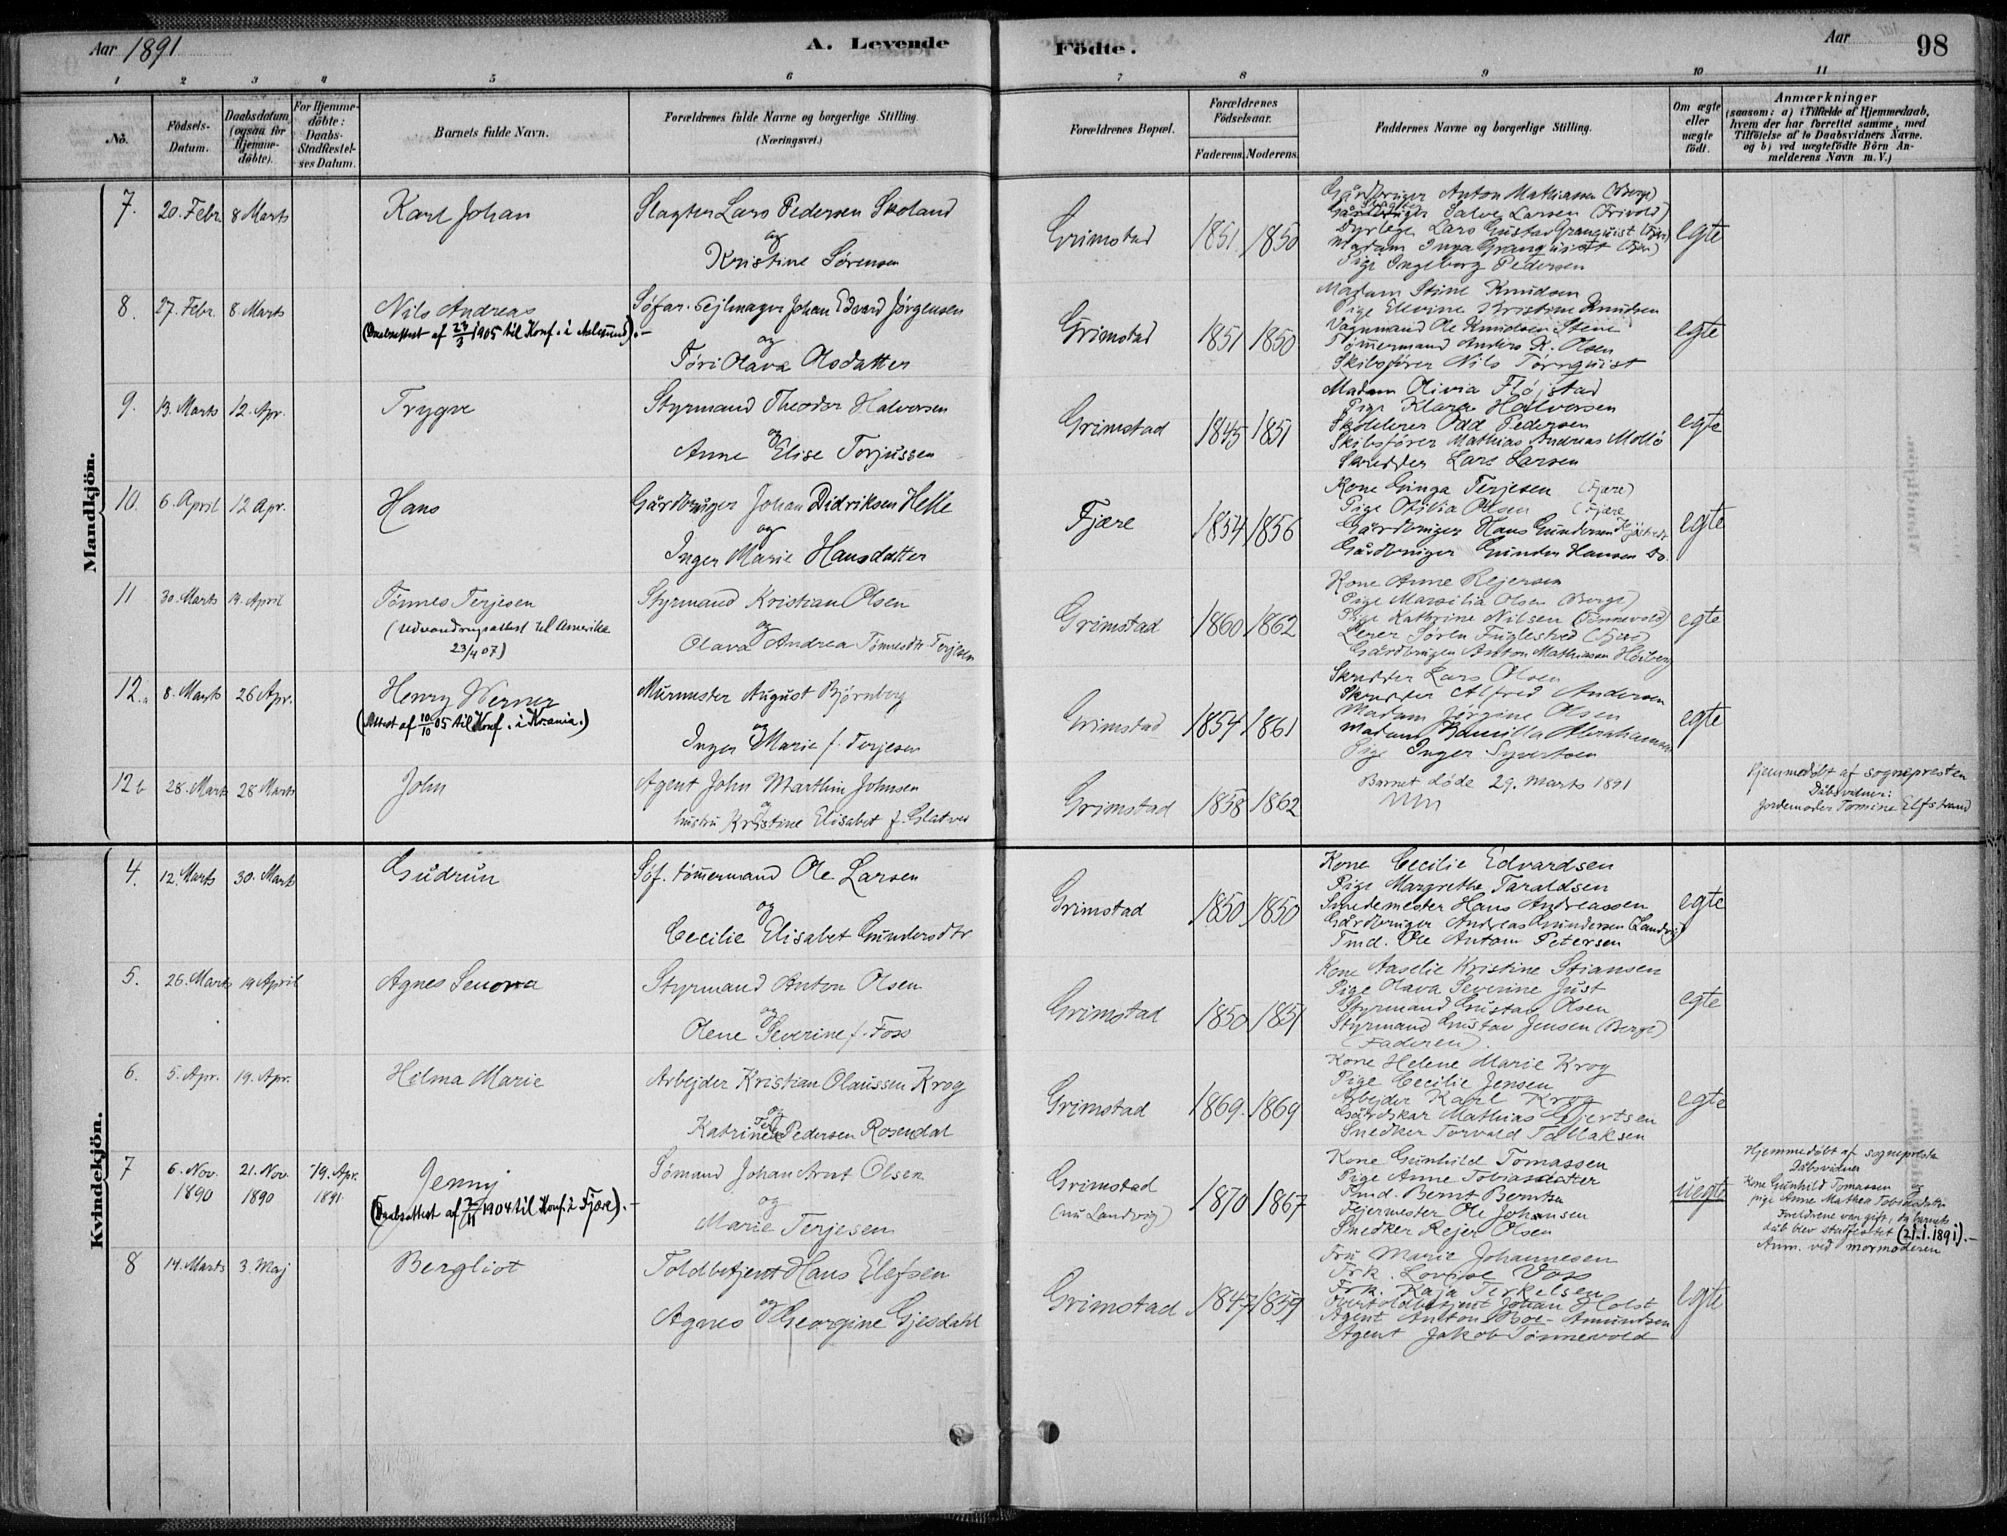 Aar 1891
A. Levende
Födte.
Aar
98
1 2 3 4 5 6 7 8 9 10 11
No.
Födsels-Datum.
Daabsdatum (ogsaa for Hjemme-döbte).
For Hjemme-döbte: Daabs-Stadfæstel-ses Datum.
Barnets fulde Navn.
Forældrenes fulde Navne og borgerlige Stilling.
(Næringsvei.)
Forældrenes Bopæl.
Forældrenes Födselsaar.
Faderens. Moderens.
Faddernes Navne og borgerlige Stilling.
Om ægte eller uægte födt.
Anmærkninger
(saasom: a) i Tilfælde af Hjemmedaab,
hvem der har forrettet samme, med
Tilföielse af to Daabsvidners Navne.
og b) ved uægtefödte Börn An-
melderens Navn m.V.)
Mandkjön.
7. 20. Febr. 8 Marts Karl Johan
Slagter Lars Pedersen Skoland
og
Kristine Sørensen
Grimstad 1851 1850
Gårdbruger Anton Mathiassen (Berge)
Salve Larsen (Frivold)
Dyrlæge Lars Gustav Granquist (Fjære)
Madam Inga Granquist (Fjære)
Pige Ingeborg Pedersen
egte
8. 27. Febr. 8. Marts Nils Andreas
(Daabsattest af 24/3 1905 til Konf. i Aalesund).-
Søfar. Sejlmager Johan Edvard Jørgensen
og
Tøri Olava Olsdatter
Grimstad 1851 1850
Madam Stine Knudsen
Pige Elevine Kristine Knudsen
Vognmand Ole Knudsen Stene
Tømmermand Anders K. Olsen
Skibsfører Nils Tørnquist
egte
9. 13. Marts 12. Apr. Trygve
Styrmand Theodor Halvorsen
og
Anne Elise Torjussen
Grimstad 1845 1851
Madam Olivia Fløjstad
Pige Klara Halvorsen
Odd Pedersen
Skibsfører Mathias Andreas Mollø
Skredder Lars Larsen
egte
10. 6. April 12 Apr. Hans
Gårdbruger Johan Didriksen Helle
og
Inger Marie Hansdatter
Fjære 1854 1856
Kone Ginga Terjesen (Fjære)
Pige Otilia Olsen (Fjære
Gårdbruger Hans Gundersen
Gårdbruger Gunder Hansen do.
egte
11 30. Marts 19. April Tønnes Terjesen
(Udvandringsattest til Amerika
23/4 07)
Styrmand Kristian Olsen
og
Olava Andrea Tønnesdtr Terjesen
Grimstad 1860 1862
Kone Anne Rejersen
Pige Marsilia Olsen (Berge)
Pige Kathrine Nilsen (Tønnevold)
Lærer Søren Fuglestved (Fjære)
Gårdbruger Anton Mathiassen
egte
12a 8. Marts 26 Apr. Henry Werner
(Attest af 10/10 05 til Konf. i Krania.)
Murmester August Bjørnberg
og
Inger Marie f. Terjesen
Grimstad 1854 1861
Skredder Lars Olsen
Skredder Alfred Andersen
Madam Jørgine Olsen
Madam Kamilla Abrahamsen
Pige Inger Syvertsen
egte
12b 28. Marts 28 Marts John
Agent John Marthin Johnsen
og
hustru Kristine Elisabet f. Glatved
Grimstad 1858 1862
Barnet døde 29. Marts 1891
Hjemmedøbt af sognepresten
Dåbsvidner:
Jordemoder Tomine Elfstrand
Kvindekjön.
4. 12. Marts 30. Marts Gudrun
Søf. tømmermand Ole Larsen
og
Cecilie Elisabet Gundersdtr
Grimstad 1850 1850
Kone Cecilie Edvardsen
Pige Margrethe Taraldsen
Smedemester Hans Andreassen
Gårdbruger Andreas Gundersen (Landvig)
Tmd. Ole Antom Petersen
egte
5. 26. Marts 19 April Agnes Senora
Styrmand Anton Olsen
og
Olene Severine f. Foss
Grimstad 1850 1851
Kone Aaselie Kristine Stiansen
Pige Olava Severine Just
Styrmand Gustav Olsen
Styrmand Gustav Jensen (Berge)
(Faderen).
egte
6. 5. Apr. 19. Apr. Hilma Marie
Arbejder Kristian Olaussen Krog
og
Katrine Pedersen Rosendal
Grimstad 1869. 1869
Kone Helene Marie Krog
Pige Cecilie Jensen
Arbejder Karl Krog
Gårdskar Mathias Gjertsen
Snedker Torvald Tallaksen
egte
7 6. Nov. 1890 21. Nov. 1890 19. Apr. 1891 Jenny
(Daabsattest af 7/11 1904 til Konf. i Fjære).-
Sømand Johan Arnt Olsen
og
Marie Terjesen
Grimstad
(nu Landvig)
1870 1867
Kone Gunhild Tomassen
Pige Anne Tobiasdatter
Tmd. Bernt Berntsen
Fejermester Ole Johansen
Snedker Rejer Olsen
uegte
Hjemmedøbt af sogneprest
Dåbsvidner
Kone Gunhild Tomassen og
pige Anne Mathea Tobiasdatter
Foreldrene var gift, da barnets
dåb blev stadfestet (21.1.1891).-
Anm. ved mormoderen
8 14. Marts 3. Maj Bergliot
Toldbetjent Hans Elefsen
og
Agnes Georgine Gjesdahl
Grimstad 1847 1859
Fru Marie Johannesen
Frk. Lovise Voss
Frk. Kaja Terkelsen
Overtoldbetjent Johan Holst
Agent Anton Boe-Amundsen
Agent Jakob Tønnevold
egte